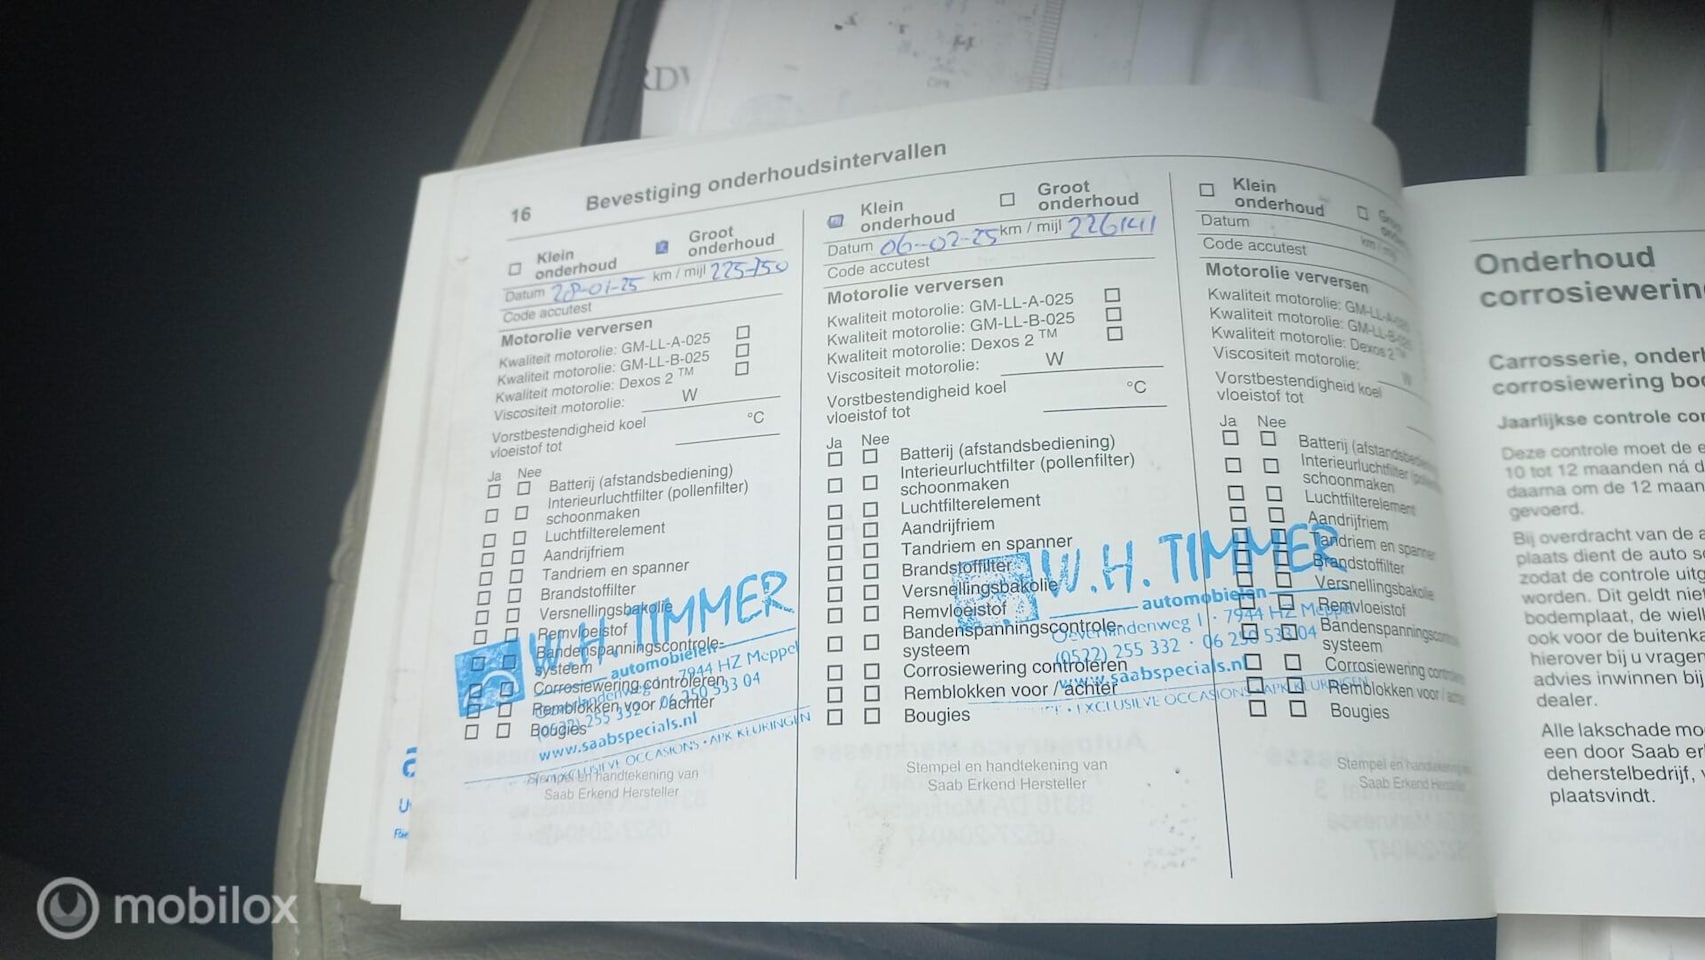 16 Bevestiging onderhoudsintervallen
Klein onderhoud
Groot onderhoud
Datum 28-01-25 km / mijl 225-750
Code accutest
Motorolie verversen
Kwaliteit motorolie: GM-LL-A-025
Kwaliteit motorolie: GM-LL-B-025
Kwaliteit motorolie: Dexos 2 TM
Viscositeit motorolie: W
Vorstbestendigheid koel
vloeistof tot °C
Ja Nee
Batterij (afstandsbediening)
Interieurluchtfilter (pollenfilter)
schoonmaken
Luchtfilterelement
Aandrijfriem
Tandriem en spanner
Brandstoffilter
Versnellingsbakolie
Remvloeistof
Bandenspanningscontrole-
systeem
Corrosiewering controleren
Remblokken voor / achter
Bougies
W.H. TIMMER
automobielen
7944 HZ Meppel
(0522) 255 332 · 06 250 533 04
www.saabspecials.nl
EXCLUSIEVE OCCASIONS · APK KEURINGEN
Stempel en handtekening van
Saab Erkend Hersteller
Klein
onderhoud
Groot
onderhoud
Datum 06-02-25 km / mijl 226141
Code accutest
Motorolie verversen
Kwaliteit motorolie: GM-LL-A-025
Kwaliteit motorolie: GM-LL-B-025
Kwaliteit motorolie: Dexos 2 TM
Viscositeit motorolie: W
Vorstbestendigheid koel
vloeistof tot °C
Ja Nee
Batterij (afstandsbediening)
Interieurluchtfilter (pollenfilter)
schoonmaken
Luchtfilterelement
Aandrijfriem
Tandriem en spanner
Brandstoffilter
Versnellingsbakolie
Remvloeistof
Bandenspanningscontrole-
systeem
Corrosiewering controleren
Remblokken voor / achter
Bougies
W.H. TIMMER
automobielen
Oeverlandenweg 1 · 7944 HZ Meppel
(0522) 255 332 · 06 250 533 04
www.saabspecials.nl
EXCLUSIEVE OCCASIONS · APK KEURINGEN
Stempel en handtekening van
Saab Erkend Hersteller
Klein
onderhoud
Datum km / mijl
Code accutest
Motorolie verversen
Kwaliteit motorolie: GM-LL-A-025
Kwaliteit motorolie: GM-LL-B-025
Kwaliteit motorolie: Dexos 2 TM
Viscositeit motorolie: W
Vorstbestendigheid koel
vloeistof tot
Ja Nee
Batterij (afstandsbediening)
Interieurluchtfilter
schoonmaken
Luchtfilterelement
Aandrijfriem
Tandriem en spanner
Brandstoffilter
Versnellingsbakolie
Remvloeistof
Bandenspanningscontrole-
systeem
Corrosiewering
Remblokken voor /
Bougies
Stempel en handtekening
Saab Erkend Hersteller
Onderhoud
corrosiewerin
Carrosserie, onder
corrosiewering bo
Jaarlijkse controle cor
Deze controle moet de e
10 tot 12 maanden ná d
daarna om de 12 maan
gevoerd.
Bij overdracht van de a
plaats dient de auto s
zodat de controle uitg
worden. Dit geldt niet
bodemplaat, de wiel
ook voor de buitenka
hierover bij u vragen
advies inwinnen bij
dealer.
Alle lakschade mo
een door Saab er
deherstelbedrijf,
plaatsvindt.
mobilox